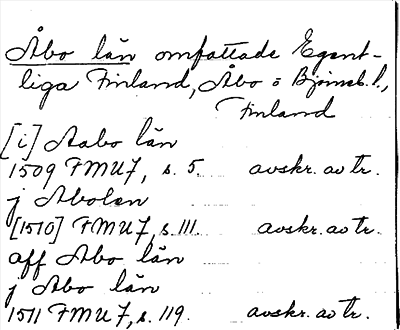 Åbo län omfattade Egent-
liga Finland, Åbo o Björneb. l.,
Finland
[i] Aabo län
1509 FMU 7, s. 5. avskr. av tr.
j Abolen
[1510] FMU 7, s. 111. avskr. av tr.
aff Abo län
j Abo län
1511 FMU 7, s. 119. avskr. av tr.